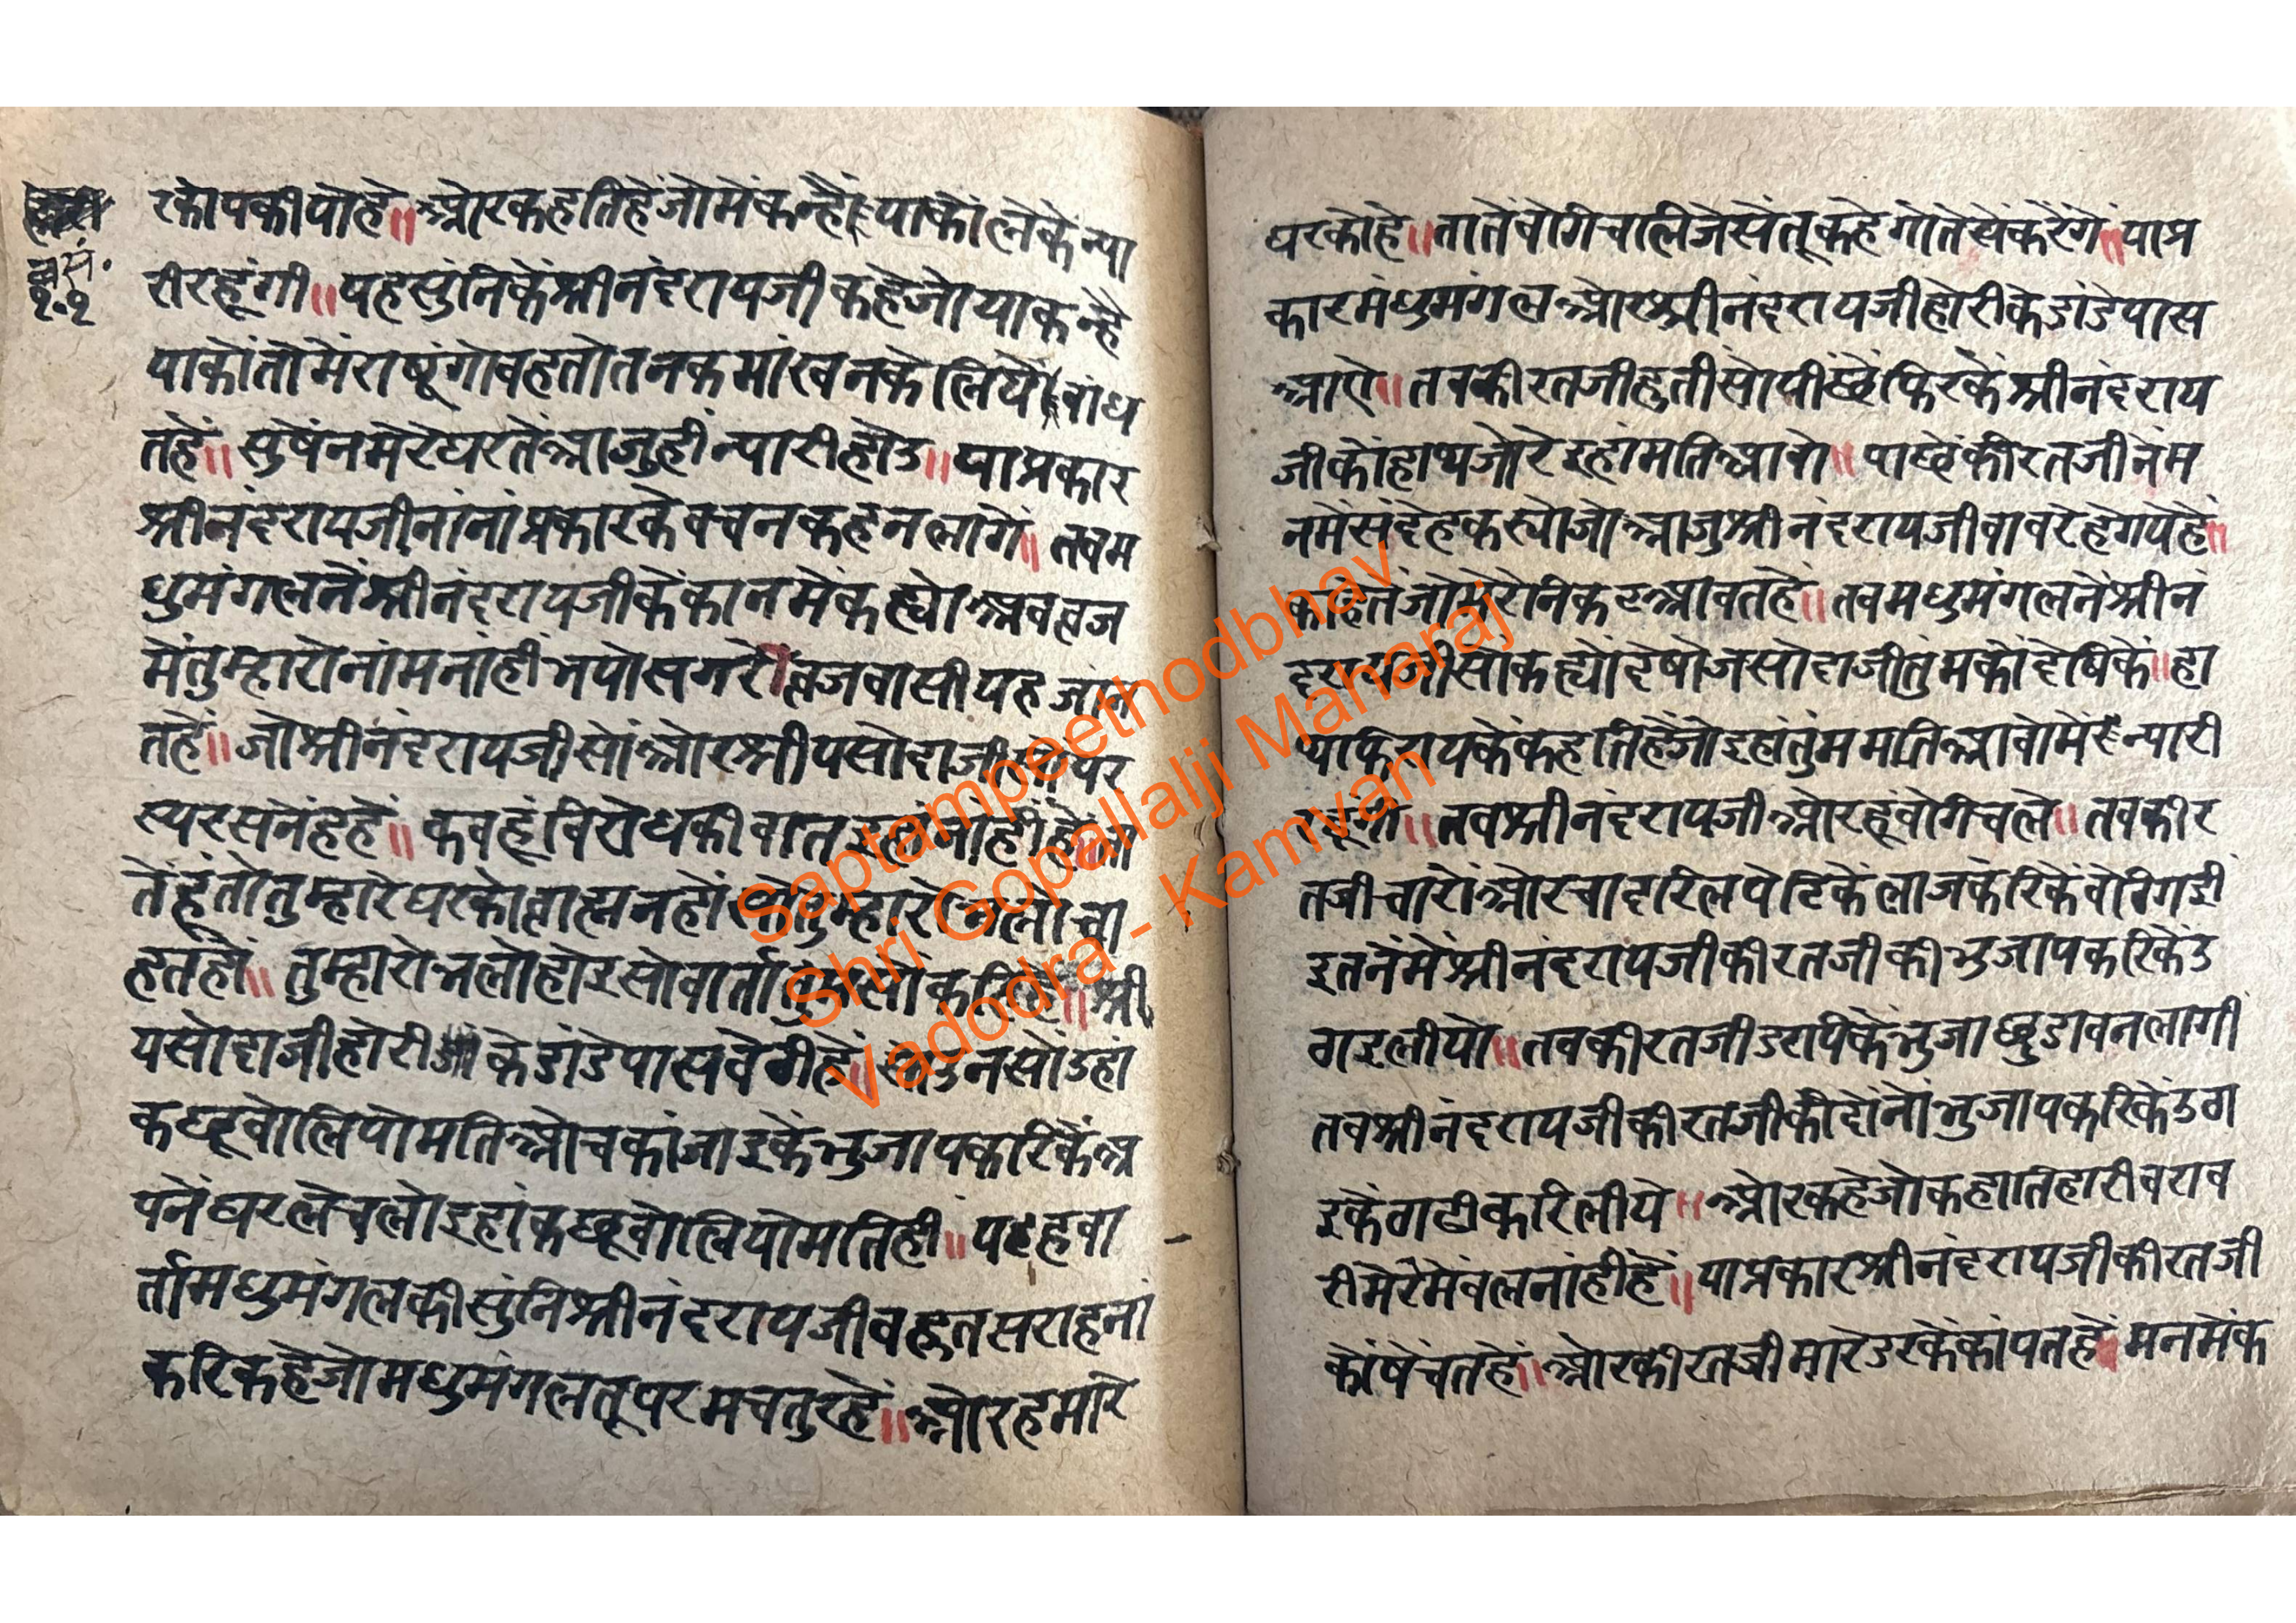 व्रसं.
१०१
रकोपकीयोहे॥ ओरकहतिहेंजोमेंकन्हैयाकोंलेकेंन्या
रीरहूंगी॥ यहसुंनिकेंश्रीनंदरायजीकहेजोयाकन्है
याकोंतोमेंराषूंगोवहतोतनकमांखनकेलियेंबांध
तहें॥ सुषेंनमेरेघरतेंआजुहींन्यारीहोउ॥ याप्रकार
श्रीनंदरायजीनांनांप्रकारकेवचनकहनलागे॥ तबम
धुमंगलनेंश्रीनंदरायजीकेंकांनमेंकह्योअबव्रज
मेंतुम्हारोनांमनांहींभयोसगरेव्रजवासीयहजांन
तहें॥ जोश्रीनंदरायजीसोंओरश्रीयसोदाजी पर
स्परसनेंहहें॥ कबहूंविरोधकीबात नांहींहे
तेंहूंतोतुम्हारेघरकोब्राह्मनहों तुम्हारोभलोचा
हतहों॥ तुम्हारोभलोहोइसोवार्ता श्री
यसोदाजीहोरीकेडांडेपासबेठीहें॥ सोउनसोंउहां
कछूबोलियोमतिओचकांजाइकेंभुजापकरिकेंअ
पनेंघरलेचलोइहांकछूबोलियोमतिहीं॥ यहवा
र्तामधुमंगलकीसुंनिश्रीनंदरायजीबहुतसराहनां
करिकहेजोमधुमंगलतूपरमचतुरहें॥ ओरहमारे
घरकोहे॥ तातेंबेगिचालिजेसेंतूकहेगोतेसेंकरेंगे॥ याप्र
कारमधुमंगलओरश्रीनंदरायजीहोरीकेडांडेपास
आऐ॥ तबकीरतजीहुतीसोपीछेंफिरकेंश्रीनंदराय
जीकोंहाथजोरेइहांमतिआवो॥ पाछेंकीरतजीनेंम
नमेंसंदेहकस्योजोआजुश्रीनंदरायजीबावरेहेगयेहें॥
काहेतेंजोमेरोनिकटआवतहें॥ तबमधुमंगलनेंश्रीनं
दरायजीसोंकह्योंदेषोजसोदाजीतुंमकोंदेषिकें॥ हा
थफिरायकेंकहतिहेंजोइहांतुंममतिआवोमेंन्यारी
रहूंगी॥ तबश्रीनंदरायजीओरहूंबेगिचले॥ तबकीर
तजीचारोंओरचादरिलपेटिकेंलाजकरिकेंबेठिगई
इतनेंमेंश्रीनंदरायजीकीरतजीकीभुजापकरिकेंउ
ठाइलीयो॥ तबकीरतजीडरपिकेंभुजाछुडावनलागी
तबश्रीनंदरायजीकीरतजीकीदोंनोंभुजापकरिकेंउठा
इकेंठाढीकरिलीये॥ ओरकहेजोकहातिहारीबराब
रीमेरेमेंबलनांहींहें॥ याप्रकारश्रीनंदरायजीकीरतजी
कोंषेंचतहें॥ ओरकीरतजीमारेडरकेंकांपतहें॥ मनमेंक
Saptampeethodbhav
Shri Gopallalji Maharaj
Vadodra - Kamvan